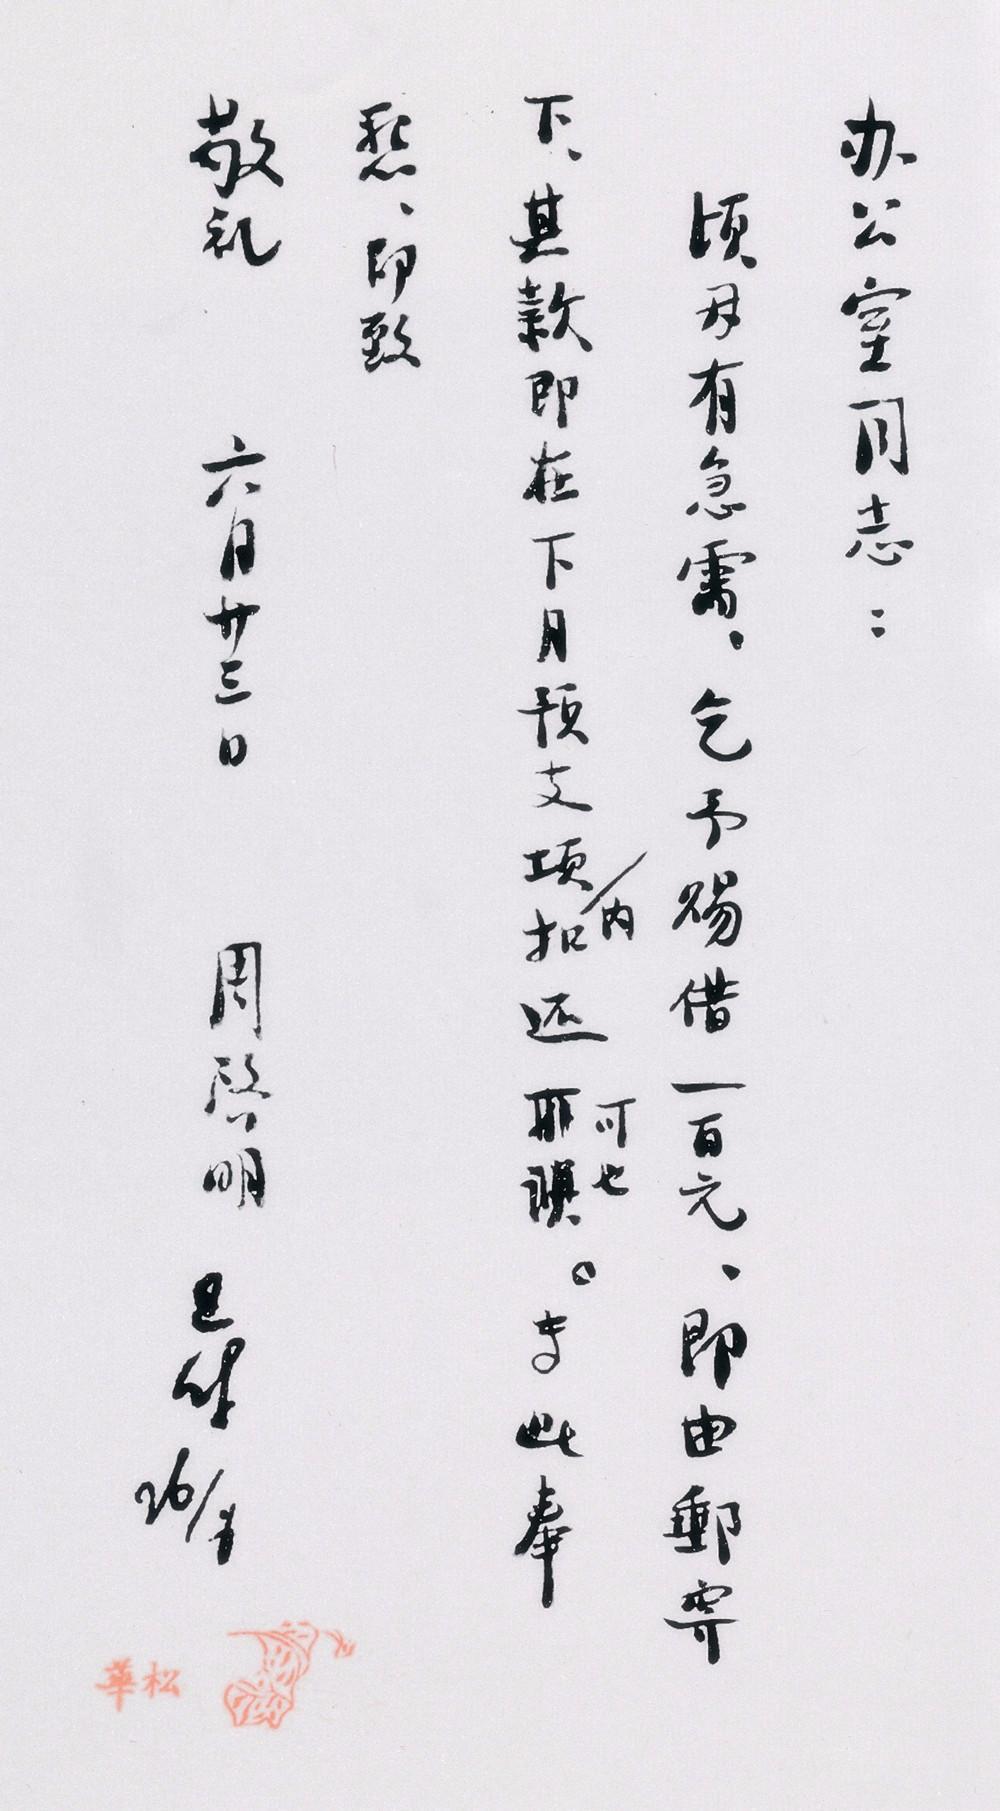 办公室同志：
顷因有急需，乞予赐借一百元、即由郵寄
下、其款即在下月预支项内扣还可也。专此奉
恳、即致
敬礼 六月廿三日 周啓明
已付
26/
松華